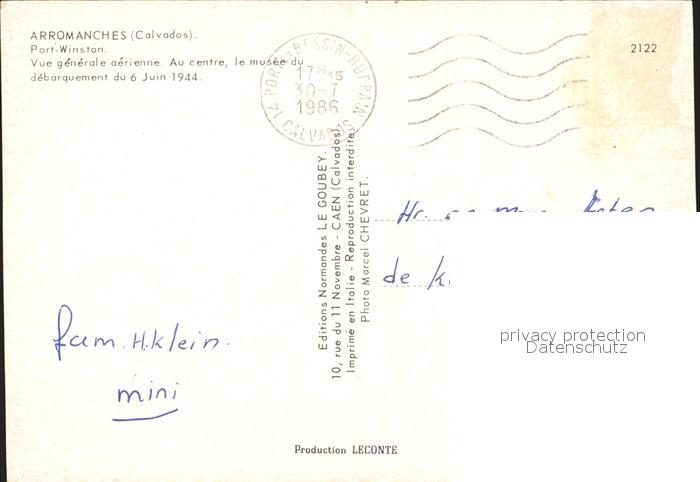 ARROMANCHES (Calvados).
Port-Winston.
Vue générale aérienne. Au centre, le musée du
débarquement du 6 Juin 1944.
14 PORT-EN-BESSIN-HUPPAIN
17H15
30-7
1986
CALVADOS
2122
Editions Normandes LE GOUBEY.
10, rue du 11 Novembre - CAEN (Calvados)
Imprimé en Italie - Reproduction interdite
Photo Marcel CHEVRET.
Hr.
de K.
privacy protection
Datenschutz
fam. H. Klein.
mini
Production LECONTE